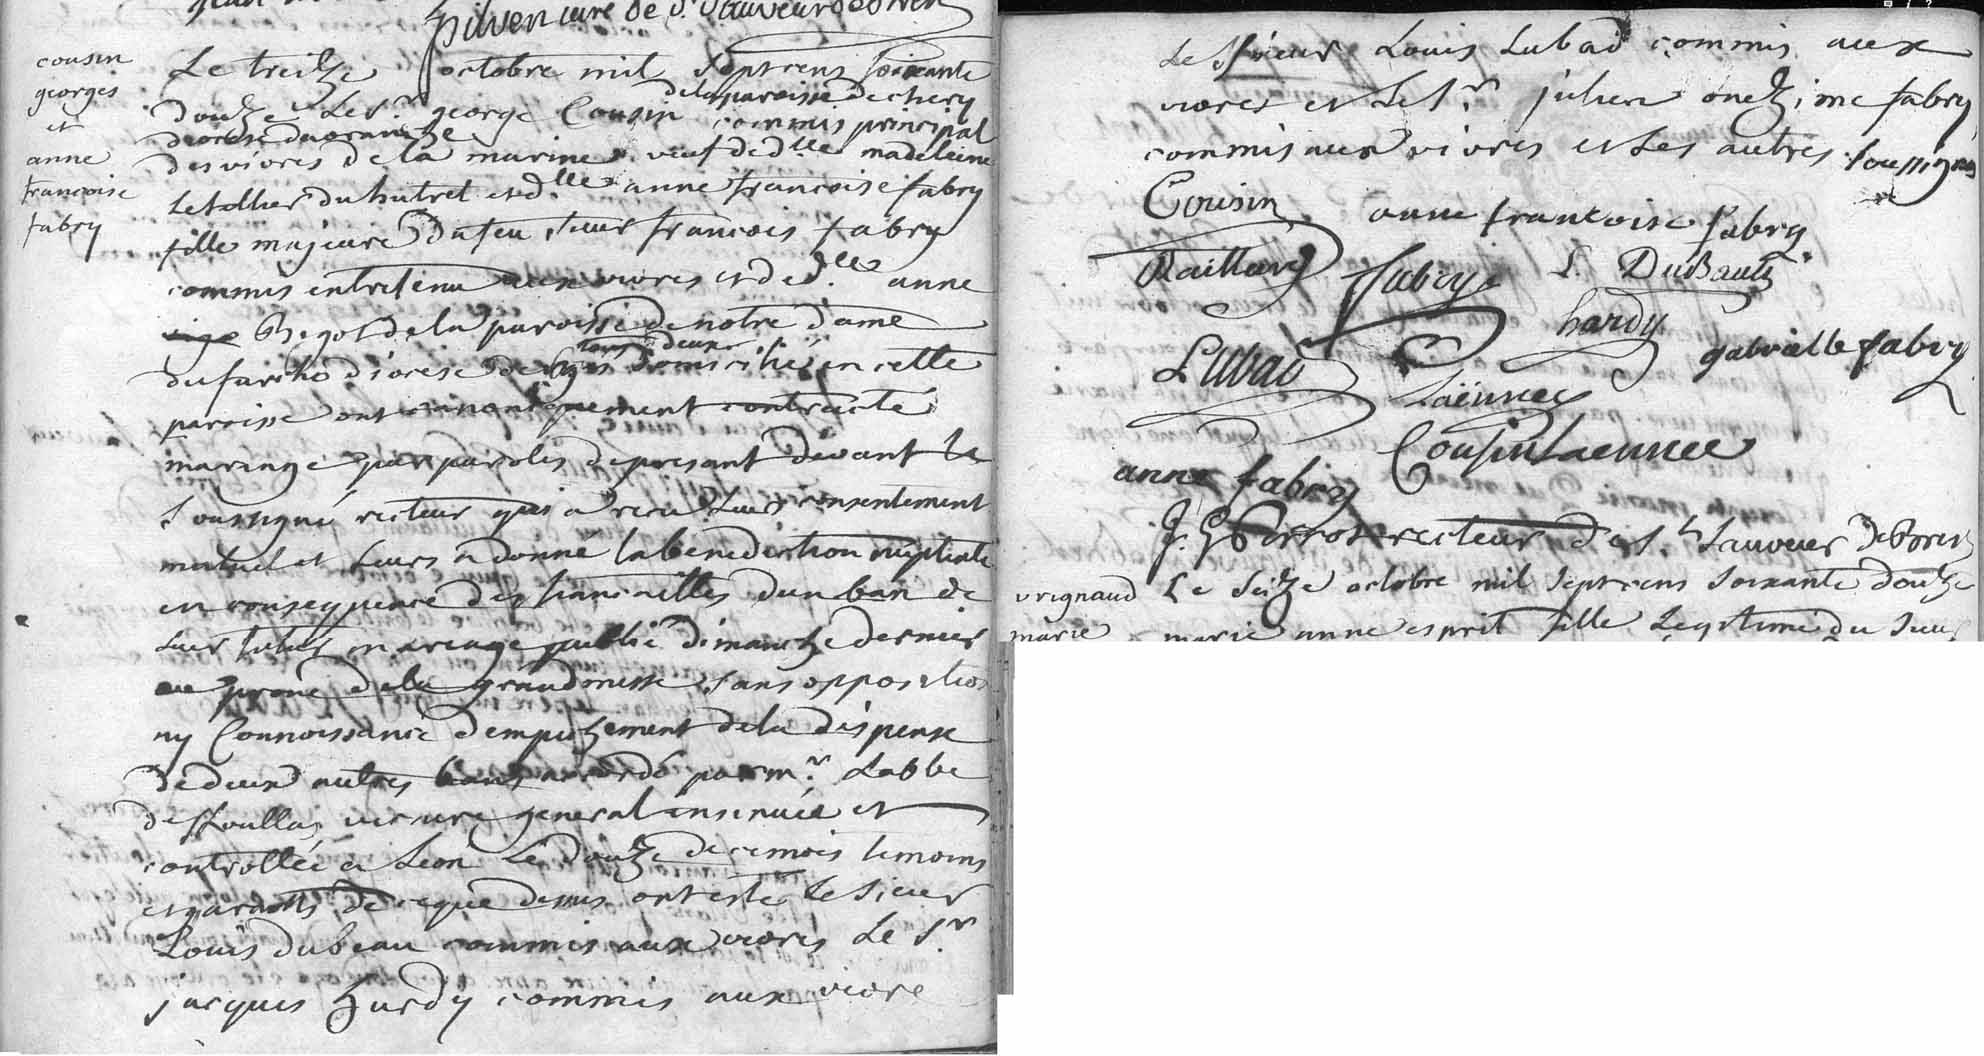 pilven cure de St Sauveur de Brest
cousin
georges
et
anne
francoise
fabry
Le treitze octobre mil septcens soixante
de la paroisse de chery
doutze Le Sr. george Cousin commis principal
diocese
des vivres de la marine veuf de dlle madeleine
Letellier du hutrel et dlle anne francoise fabry
fille majeure du feu sieur francois fabry
commis entretenu aux vivres et de dlle anne
Begot de la paroisse de notre dame
tous deux
du diocese de domicilies en cette
paroisse ont canoniquement contracté
mariage par paroles de presant devant le
soussigné recteur qui a recu leur consentement
mutuel et leurs a donne la benediction nuptiale
en consequence des fiancailles d'un ban de
leur futur mariage publié dimanche dernier
au prone de la grandmesse sans opposition
ny Connoissance d'empechement de la dispense
de deux autres bans accordé par mr. Labbe
de vicaire general insinuée et
controllée a Leon le doutze de ce mois temoins
et garants de ce que dessus ont esté le sieur
Louis dubeau commis aux vivres Le Sr
jacques hardy commis aux vivre
Le Sieur Louis Lubad commis aux
vivres et Le Sr julien onetzime fabry
commis aux vivres et Les autres soussignes
Cousin anne francoise fabry
Raillard fabry L. DuBault
hardy
Lubad gabrielle fabry
Laënnec
Cousin Laennec
anne fabry
J. G Perrot recteur de St Sauveur de Brest
vrignaud Le Seitze octobre mil septcens soixante doutze
marie marie anne esprit fille Legitime du Sieur